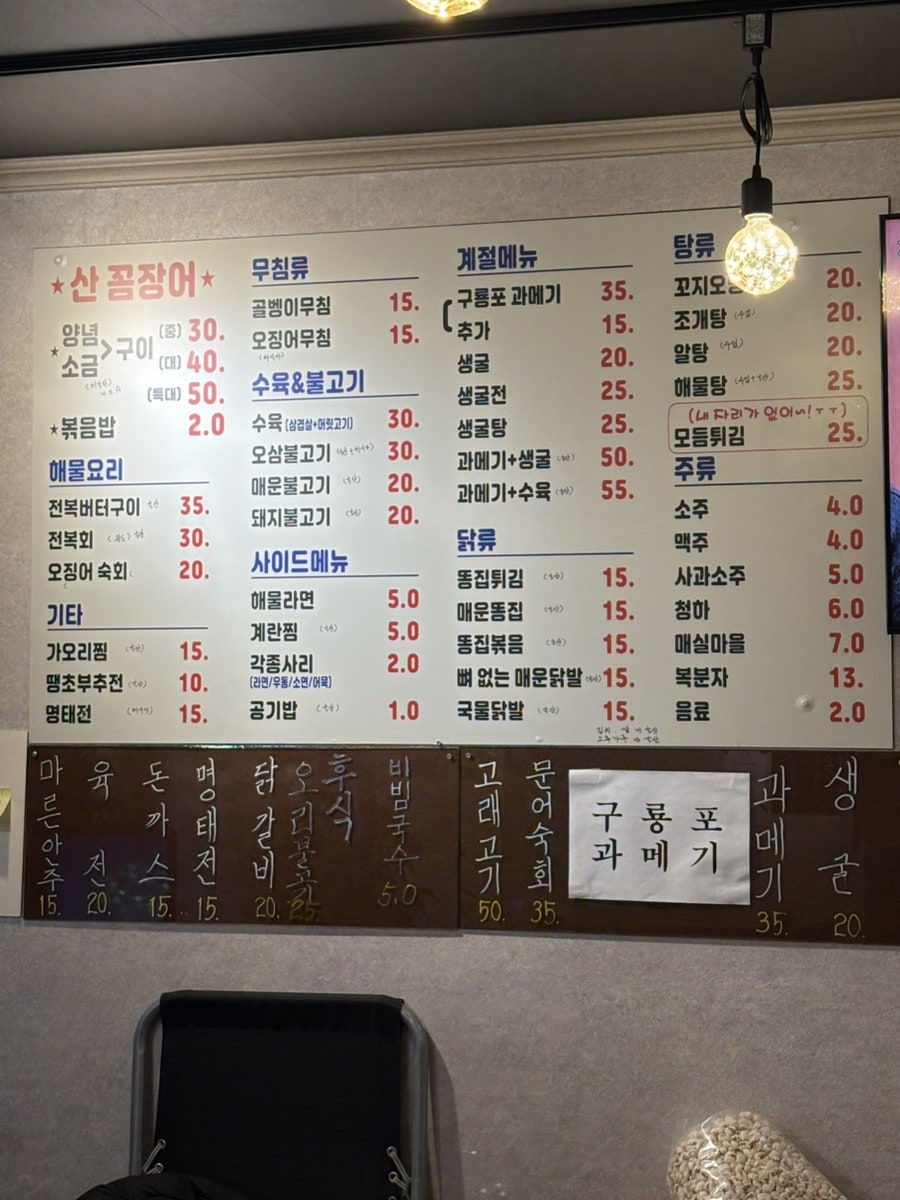 ★산 꼼장어★
★ 양념 소금 > 구이
(중) 30.
(대) 40.
(특대) 50.
★볶음밥 2.0
해물요리
전복버터구이 35.
전복회 30.
오징어 숙회 20.
기타
가오리찜 15.
땡초부추전 10.
명태전 15.
무침류
골벵이무침 15.
오징어무침 15.
수육&불고기
수육 (삼겹살+머릿고기) 30.
오삼불고기 30.
매운불고기 20.
돼지불고기 20.
사이드메뉴
해물라면 5.0
계란찜 5.0
각종사리 2.0
(라면/우동/소면/어묵)
공기밥 1.0
계절메뉴
구룡포 과메기 35.
추가 15.
생굴 20.
생굴전 25.
생굴탕 25.
과메기+생굴 50.
과메기+수육 55.
닭류
똥집튀김 15.
매운똥집 15.
똥집볶음 15.
뼈 없는 매운닭발 15.
국물닭발 15.
탕류
꼬지오 20.
조개탕 20.
알탕 20.
해물탕 25.
(내 다리가 없어~!ㅜㅜ)
모듬튀김 25.
주류
소주 4.0
맥주 4.0
사과소주 5.0
청하 6.0
매실마을 7.0
복분자 13.
음료 2.0
마른안주 15.
육전 20.
돈까스 15.
명태전 15.
닭갈비 20.
오리불고기 25.
후식
비빔국수 5.0
고래고기 50.
문어숙회 35.
구룡포
과메기
과메기 35.
생굴 20.